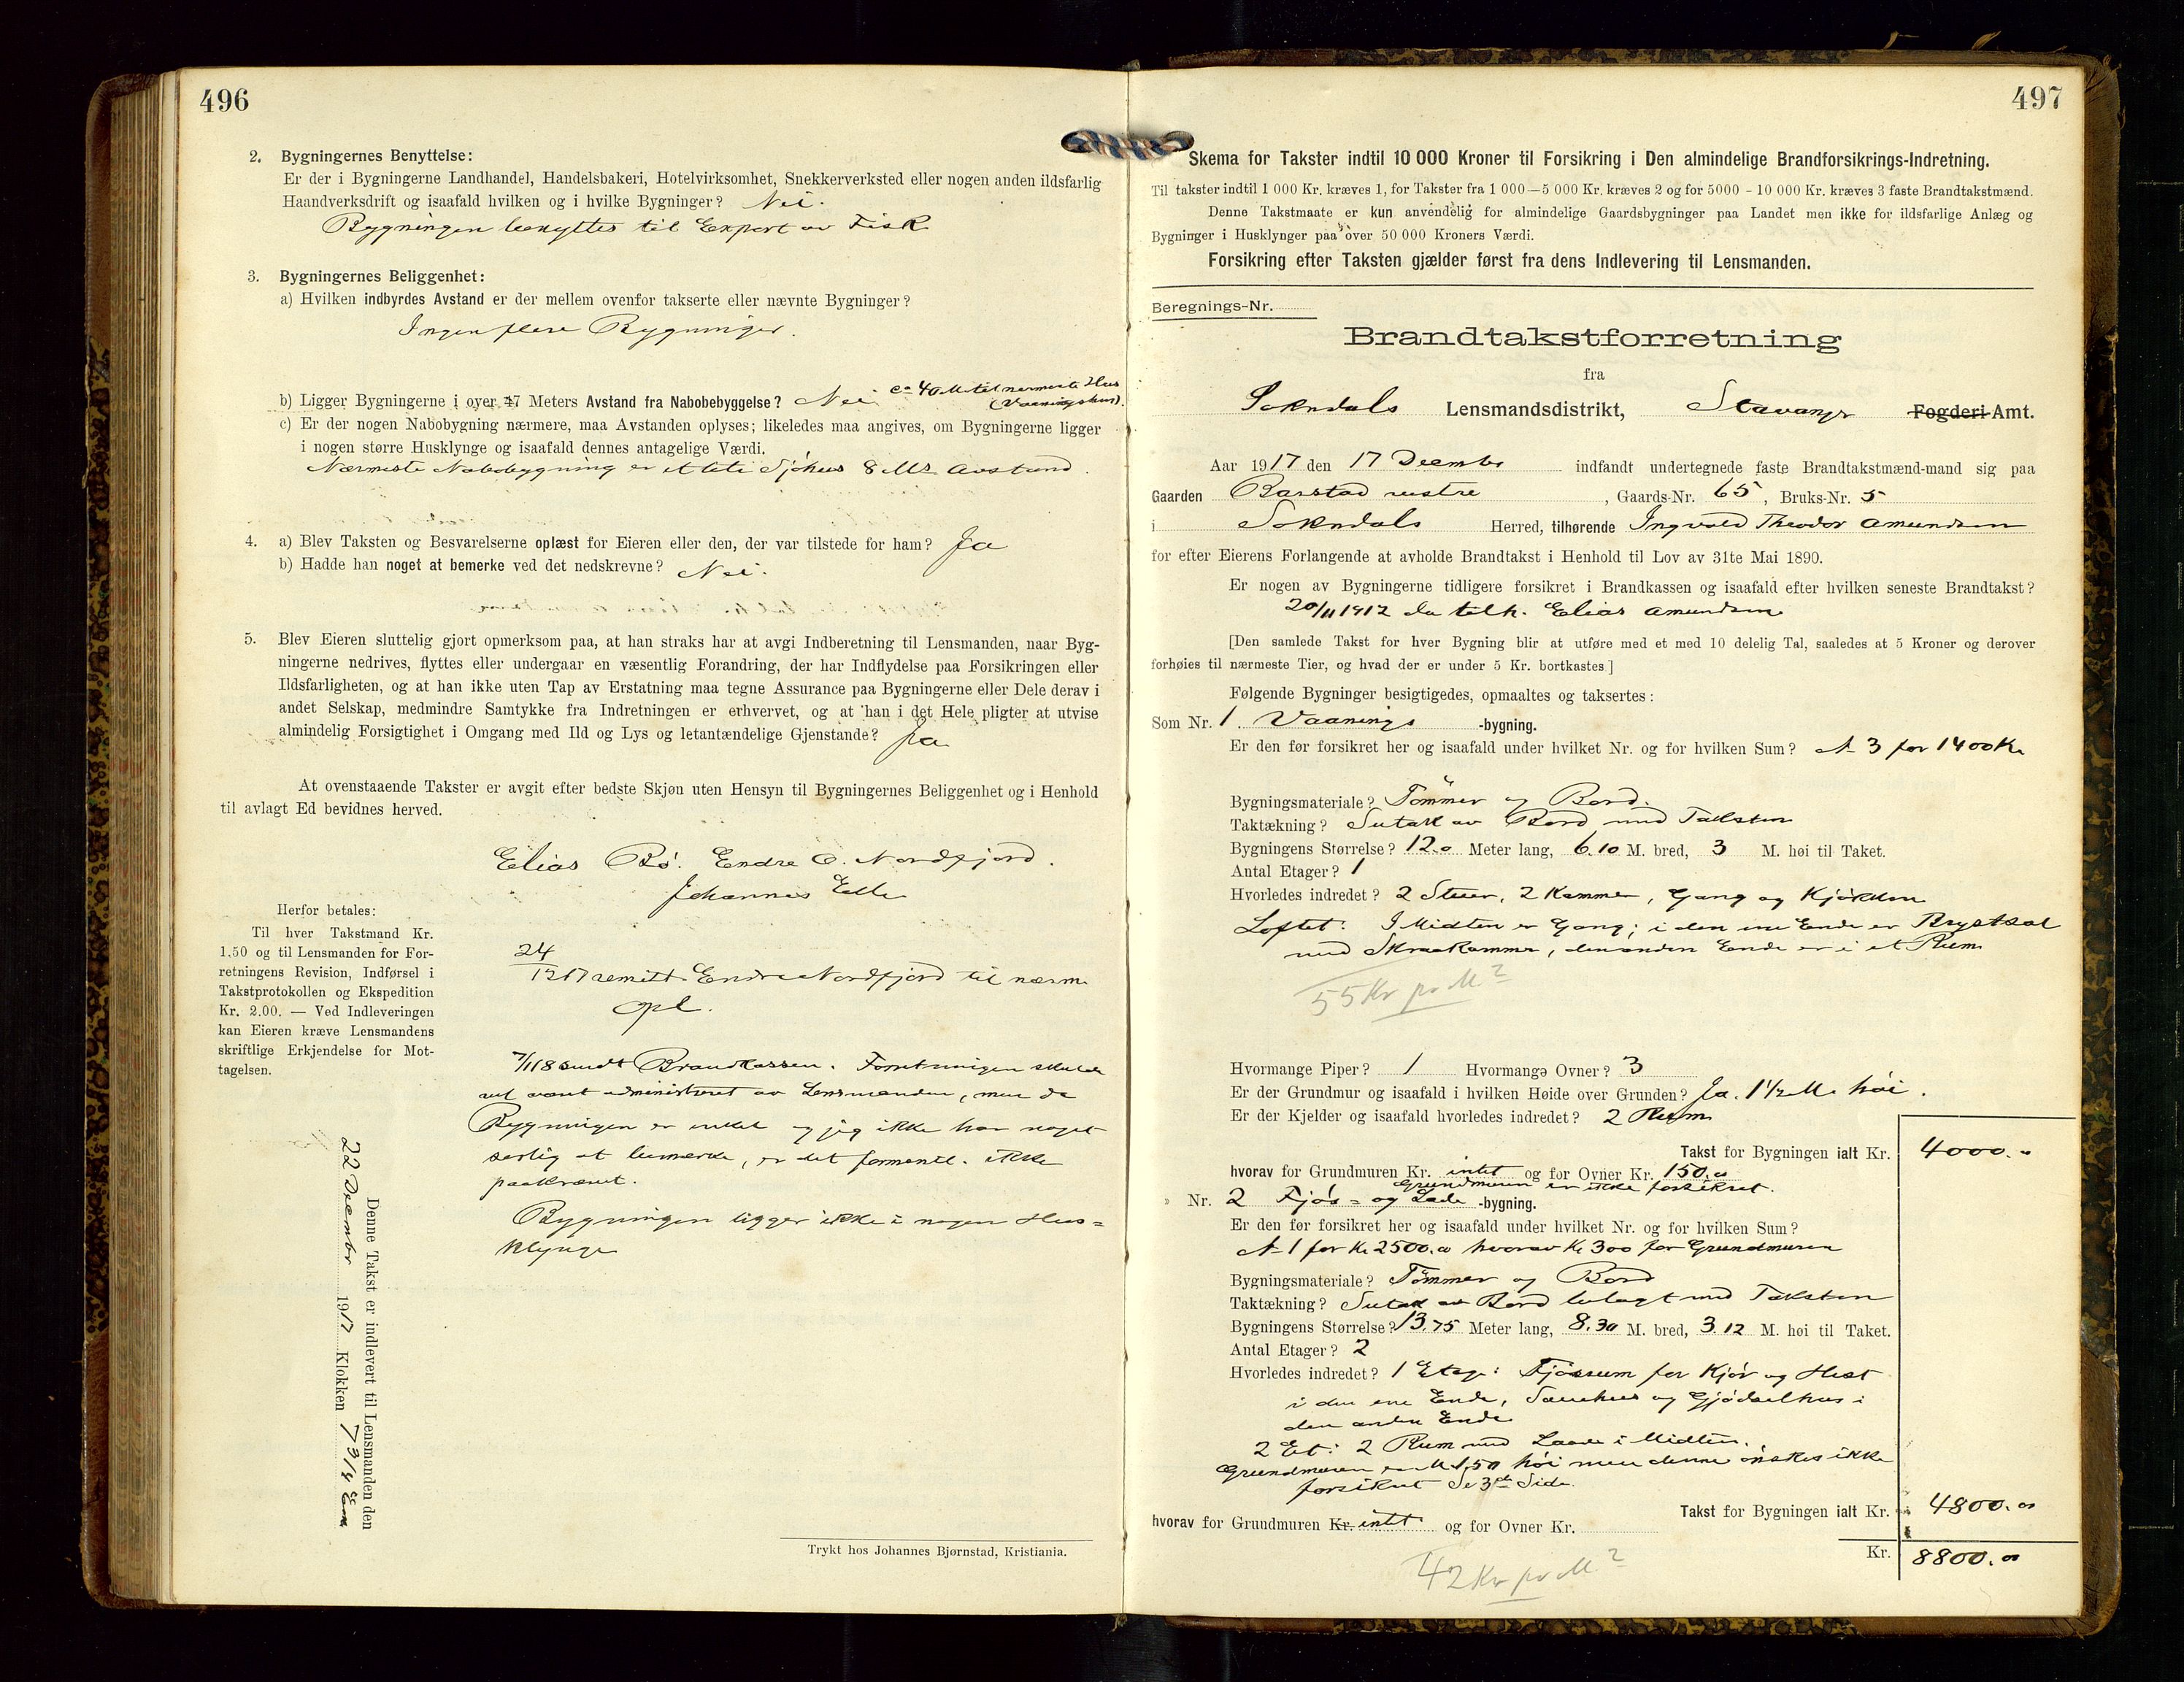 496
2. Bygningernes Benyttelse:
Er der i Bygningerne Landhandel, Handelsbakeri, Hotelvirksomhet, Snekkerverksted eller nogen anden ildsfarlig
Haandverksdrift og isaafald hvilken og i hvilke Bygninger? Nei.
Bygningen benyttes til Export av Fisk
3. Bygningernes Beliggenhet:
a) Hvilken indbyrdes Avstand er der mellem ovenfor takserte eller nævnte Bygninger?
Ingen flere Bygninger.
b) Ligger Bygningerne i over 47 Meters Avstand fra Nabobebyggelse? Nei ca 40 M til nærmeste Hus
(Vaaningshus).
c) Er der nogen Nabobygning nærmere, maa Avstanden oplyses; likeledes maa angives, om Bygningerne ligger
i nogen større Husklynge og isaafald dennes antagelige Værdi.
Nærmeste Nabobygning er et lite Sjöhus 8 Mr Avstand.
4. a) Blev Taksten og Besvarelserne oplæst for Eieren eller den, der var tilstede for ham? Ja
b) Hadde han noget at bemerke ved det nedskrevne? Nei.
5. Blev Eieren sluttelig gjort opmerksom paa, at han straks har at avgi Indberetning til Lensmanden, naar Byg-
ningerne nedrives, flyttes eller undergaar en væsentlig Forandring, der har Indflydelse paa Forsikringen eller
Ildsfarligheten, og at han ikke uten Tap av Erstatning maa tegne Assurance paa Bygningerne eller Dele derav i
andet Selskap, medmindre Samtykke fra Indretningen er erhvervet, og at han i det Hele pligter at utvise
almindelig Forsigtighet i Omgang med Ild og Lys og letantændelige Gjenstande? Ja
At ovenstaaende Takster er avgit efter bedste Skjøn uten Hensyn til Bygningernes Beliggenhet og i Henhold
til avlagt Ed bevidnes herved.
Elias Bö. Endre O. Nordfjord.
Johannes Elle
Herfor betales:
Til hver Takstmand Kr.
1.50 og til Lensmanden for For-
retningens Revision, Indførsel i
Takstprotokollen og Ekspedition
Kr. 2.00. — Ved Indleveringen
kan Eieren kræve Lensmandens
skriftlige Erkjendelse for Mot-
tagelsen.
24
12 17 remitt. Endre Nordfjord til nærm.
opl.
7/1 18 sendt Brandkassen. Forretningen skulde
vel været administreret av Lensmanden, men da
Bygningen er enkel og jeg ikke har noget
særlig at bemærke, er det formentl. ikke
paakrævet.
Bygningen ligger ikke i nogen Hus=
klynge
Denne Takst er indlevert til Lensmanden den
22 Decembr 1917 Klokken 7 3/4 Em
Trykt hos Johannes Bjørnstad, Kristiania.
497
Skema for Takster indtil 10 000 Kroner til Forsikring i Den almindelige Brandforsikrings-Indretning.
Til takster indtil 1 000 Kr. kræves 1, for Takster fra 1 000—5 000 Kr. kræves 2 og for 5000 - 10 000 Kr. kræves 3 faste Brandtakstmænd.
Denne Takstmaate er kun anvendelig for almindelige Gaardsbygninger paa Landet men ikke for ildsfarlige Anlæg og
Bygninger i Husklynger paa over 50 000 Kroners Værdi.
Forsikring efter Taksten gjælder først fra dens Indlevering til Lensmanden.
Beregnings-Nr.
Brandtakstforretning
fra
Sokndals Lensmandsdistrikt, Stavanger Fogderi Amt.
Aar 1917 den 17 Decembr indfandt undertegnede faste Brandtakstmænd-mand sig paa
Gaarden Barstad vestre, Gaards-Nr. 65, Bruks-Nr. 5
i Sokndals Herred, tilhørende Ingvald Theodor Amundsen
for efter Eierens Forlangende at avholde Brandtakst i Henhold til Lov av 31te Mai 1890.
Er nogen av Bygningerne tidligere forsikret i Brandkassen og isaafald efter hvilken seneste Brandtakst?
20/11 1912 da tilh. Elias Amundsen
[Den samlede Takst for hver Bygning blir at utføre med et med 10 delelig Tal, saaledes at 5 Kroner og derover
forhøies til nærmeste Tier, og hvad der er under 5 Kr. bortkastes]
Følgende Bygninger besigtigedes, opmaaltes og taksertes:
Som Nr. 1. Vaanings -bygning.
Er den før forsikret her og isaafald under hvilket Nr. og for hvilken Sum? N 3 for 1400 Kr
Bygningsmateriale? Tömmer og Bord.
Taktækning? Sutak av Bord med Taksten
Bygningens Størrelse? 12.0 Meter lang, 6.10 M. bred, 3 M. høi til Taket.
Antal Etager? 1
Hvorledes indredet? 2 Stuer, 2 Kammer, Gang og Kjökken
Loftet: I Midten er Gang; i den ene Ende er Brystsal
med Skraakammer, den anden Ende er i et Rum
55 Kr pr M2
Hvormange Piper? 1 Hvormange Ovner? 3
Er der Grundmur og isaafald i hvilken Høide over Grunden? Ja. 1 1/2 M. höi.
Er der Kjelder og isaafald hvorledes indredet? 2 Rum
Takst for Bygningen ialt Kr. 4000.-
hvorav for Grundmuren Kr. intet og for Ovner Kr. 150.00
Grundmuren er ikke forsikret.
» Nr. 2 Fjös- og Lade -bygning.
Er den før forsikret her og isaafald under hvilket Nr. og for hvilken Sum?
N 1 for Kr 2500.00 hvorav Kr 300 for Grundmuren
Bygningsmateriale? Tömmer og Bord
Taktækning? Sutak av Bord belagt med Taksten
Bygningens Størrelse? 13.75 Meter lang, 8.30 M. bred, 3.12 M. høi til Taket.
Antal Etager? 2
Hvorledes indredet? 1 Etage: Fjösrum for Kjör og Hest
i den ene Ende, Sauehus og Gjödselhus i
den anden Ende
2 Et: 2 Rum med Laave i Midten.
Grundmuren er M 1,50 höi men denne önskes ikke
forsikret Se 3de Side.
Takst for Bygningen ialt Kr. 4800.00
hvorav for Grundmuren Kr. intet og for Ovner Kr.
Kr. 8800.00
42 Kr pr M2